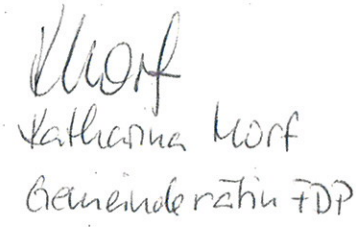 KMorf
Katharina Morf
Gemeinderätin FDP